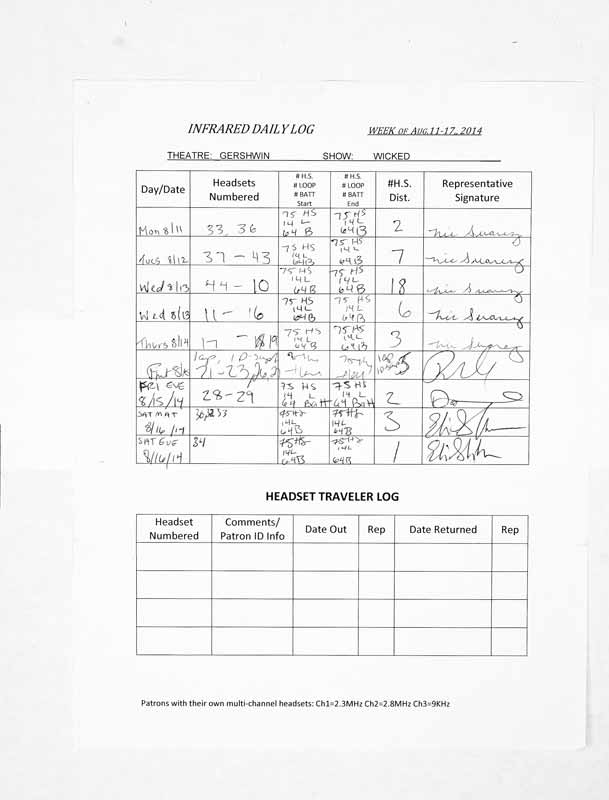 INFRARED DAILY LOG WEEK OF AUG.11-17, 2014
THEATRE: GERSHWIN SHOW: WICKED
Day/Date Headsets Numbered # H.S. # LOOP # BATT Start # H.S. # LOOP # BATT End #H.S. Dist. Representative Signature
Mon 8/11 33, 36 75 HS 14 L 64 B 75 HS 14 L 64 B 2 Nic Suarez
Tues 8/12 37 - 43 75 HS 14L 64B 75 HS 14L 64B 7 Nic Suarez
Wed 8/13 44 - 10 75 HS 14L 64B 75 HS 14L 64B 18 Nic Suarez
Wed 8/13 11 - 16 75 HS 14L 64B 75 HS 14L 64B 6 Nic Suarez
Thurs 8/14 17 - 19 75 HS 14L 64B 75 HS 14L 64B 3 Nic Suarez
21-23
FRI EVE 8/15/14 28-29 75 HS 14 L 64 Batt 75 HS 14 L 64 Batt 2
SAT MAT 8/16/14 75HS 14L 64B 75HS 14L 64B 3
SAT EVE 8/16/14 34 75HS 14L 64B 75HS 14L 64B 1
HEADSET TRAVELER LOG
Headset Numbered Comments/ Patron ID Info Date Out Rep Date Returned Rep
Patrons with their own multi-channel headsets: Ch1=2.3MHz Ch2=2.8MHz Ch3=9KHz